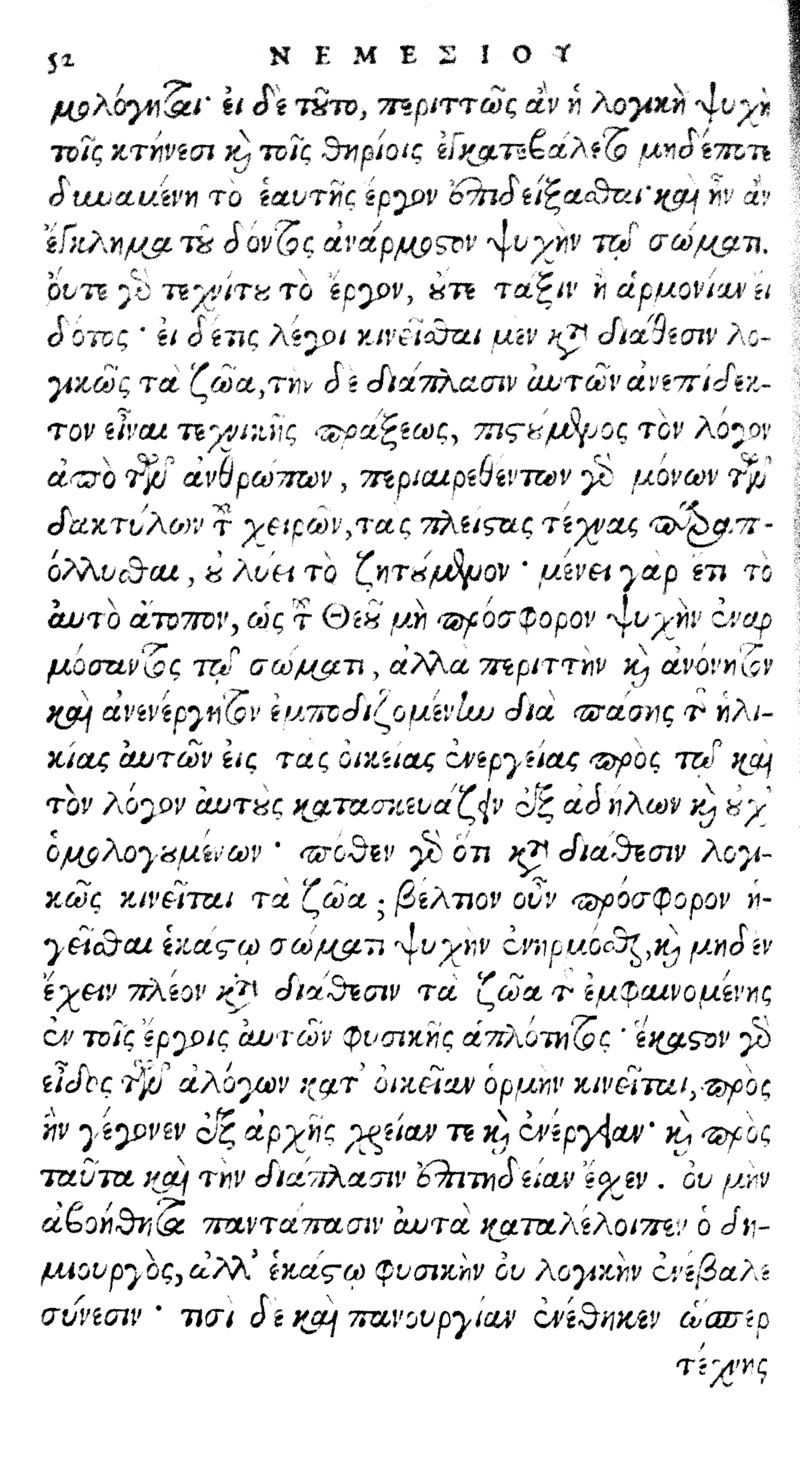 52 ΝΕΜΕΣΙΟΥ
μολόγηται· εἰ δὲ τοῦτο, περιττῶς ἂν ἡ λογικὴ ψυχὴ
τοῖς κτήνεσι καὶ τοῖς θηρίοις ἐγκατεβάλετο μηδέποτε
δυναμένη τὸ ἑαυτῆς ἔργον ἐπιδείξασθαι· καὶ ἦν ἂν
ἔγκλημα τοῦ δόντος ἀνάρμοστον ψυχὴν τῷ σώματι.
ὄυτε γὰρ τεχνίτου τὸ ἔργον, οὔτε τάξιν ἢ ἁρμονίαν εἰ
δότος· εἰ δέ τις λέγοι κινεῖσθαι μὲν κατὰ διάθεσιν λο-
γικῶς τὰ ζῶα, τὴν δὲ διάπλασιν ἀυτῶν ἀνεπίδεκ-
τον εἶναι τεχνικῆς πράξεως, πιστούμενος τὸν λόγον
ἀπὸ τῶν ἀνθρώπων, περιαιρεθέντων γὰρ μόνων τῶν
δακτύλων τῶν χειρῶν, τὰς πλείστας τέχνας παραπ-
όλλυσθαι, οὐ λύει τὸ ζητούμενον· μένει γὰρ ἔτι τὸ
ἀυτὸ ἄτοπον, ὡς τοῦ Θεοῦ μὴ πρόσφορον ψυχὴν ἐναρ
μόσαντος τῷ σώματι, ἀλλὰ περιττὴν καὶ ἀνόνητον
καὶ ἀνενέργητον ἐμποδιζομένην διὰ πάσης τῆς ἡλι-
κίας ἀυτῶν ἐις τὰς ὀικείας ἐνεργείας πρὸς τῷ καὶ
τὸν λόγον ἀυτοὺς κατασκευάζειν ἐξ ἀδήλων καὶ οὐχ
ὁμολογουμένων· πόθεν γὰρ ὅτι κατὰ διάθεσιν λογι-
κῶς κινεῖται τὰ ζῶα; βέλτιον οὖν πρόσφορον ἡ-
γεῖσθαι ἑκάστῳ σώματι ψυχὴν ἐνηρμόσθαι, καὶ μηδὲν
ἔχειν πλέον κατὰ διάθεσιν τὰ ζῶα τῆς ἐμφαινομένης
ἐν τοῖς ἔργοις ἀυτῶν φυσικῆς ἁπλότητος· ἕκαστον γὰρ
εἶδος τῶν ἀλόγων κατ' ὀικεῖαν ὁρμὴν κινεῖται, πρὸς
ἣν γέγονεν ἐξ ἀρχῆς χρείαν τε καὶ ἐνέργειαν· καὶ πρὸς
ταῦτα καὶ τὴν διάπλασιν ἐπιτηδείαν ἔχεν. ὀυ μὴν
ἀβοήθητα παντάπασιν ἀυτὰ καταλέλοιπεν ὁ δη-
μιουργὸς, ἀλλ' ἑκάστῳ φυσικὴν ὀυ λογικὴν ἐνέβαλε
σύνεσιν· τισὶ δὲ καὶ πανουργίαν ἐνέθηκεν ὥσπερ
τέχνης